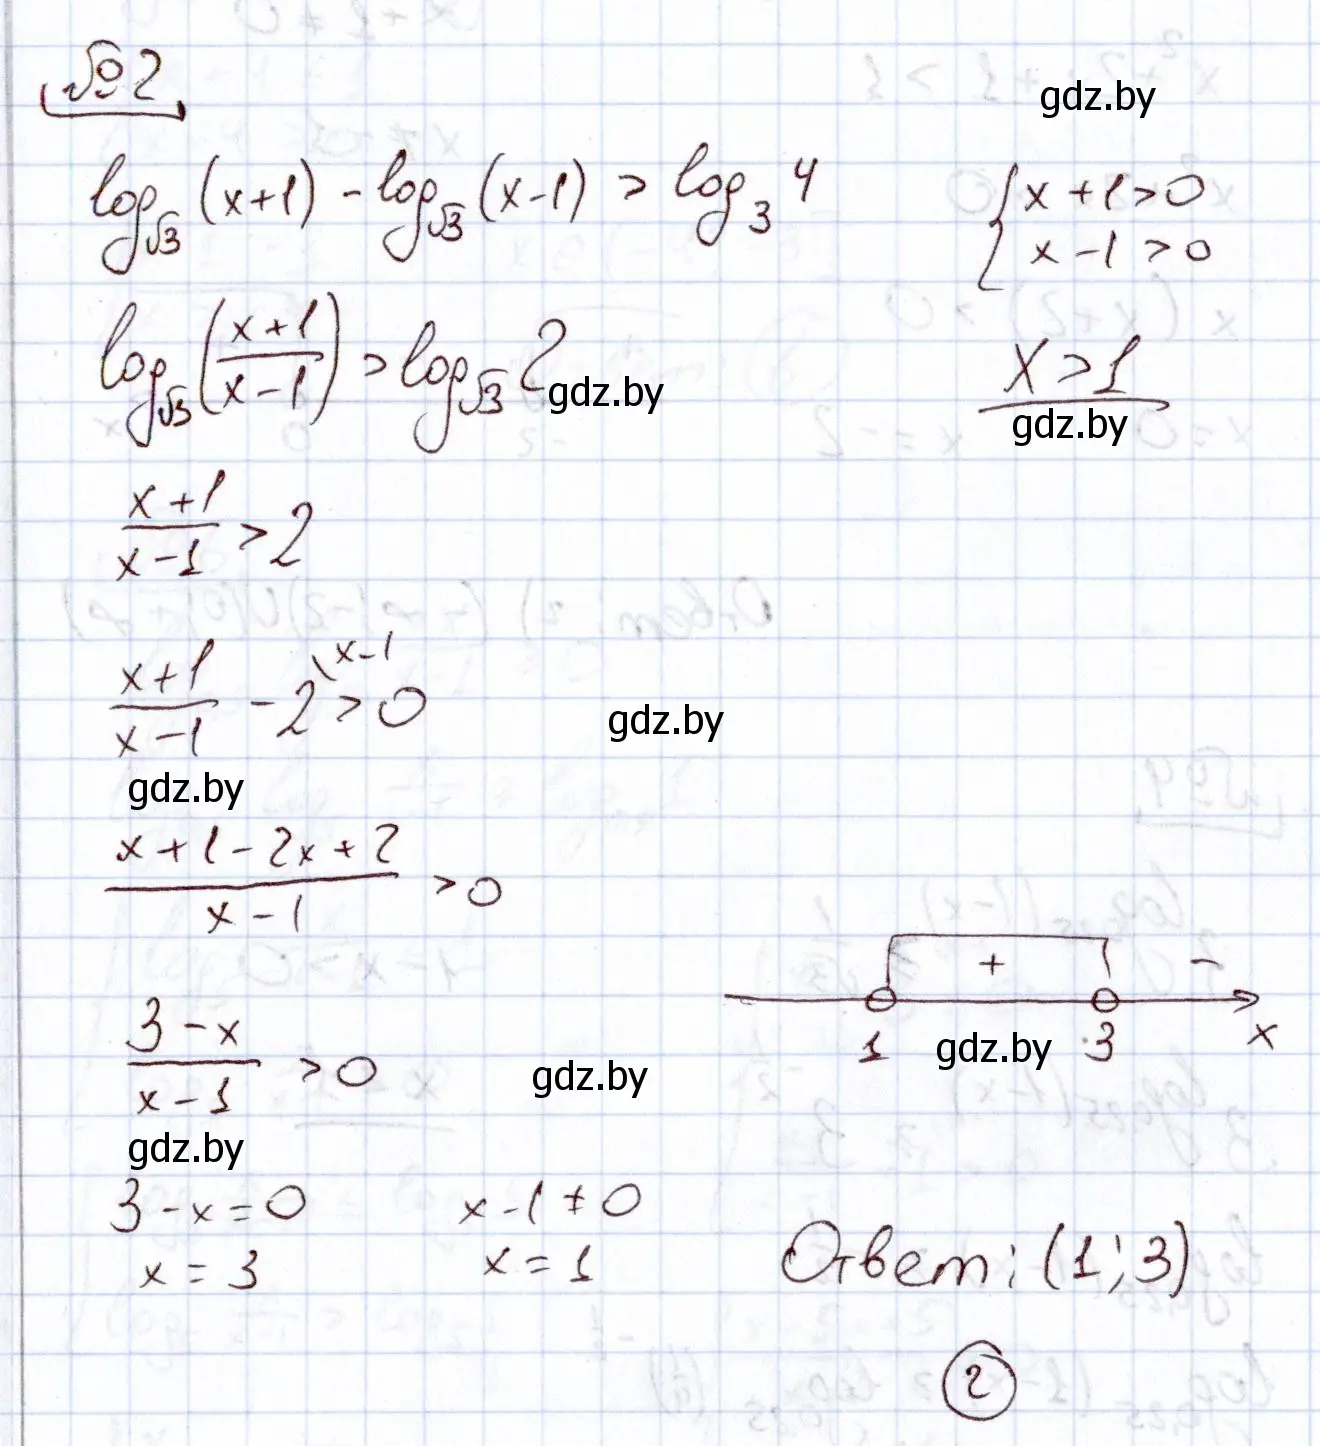 №2
log_√3 (x+1) - log_√3 (x-1) > log_3 4
{ x + 1 > 0
x - 1 > 0
gdz.by
log_√3 ((x+1)/(x-1)) > log_√3 2
gdz.by
x > 1
gdz.by
(x+1)/(x-1) > 2
(x+1)/(x-1) - 2 \x-1 > 0
gdz.by
gdz.by
(x+1-2x+2)/(x-1) > 0
+ -
1 3 x
gdz.by
(3-x)/(x-1) > 0
gdz.by
gdz.by
3-x=0 x-1≠0
x=3 x=1
Ответ: (1;3)
2